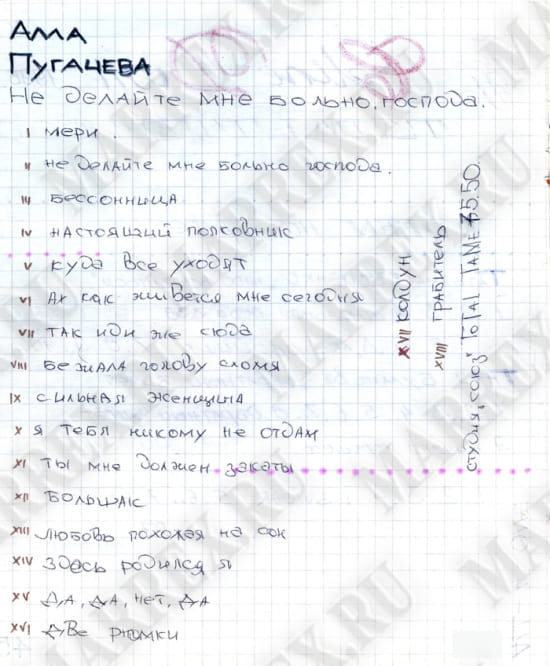 Алла
Пугачева
Не делайте мне больно, господа.
I мери.
II не делайте мне больно господа.
III бессонница
IV настоящий полковник
V куда все уходят
VI Ах как живется мне сегодня
VII так иди же сюда
VIII бежала голову сломя
IX сильная женщина
X я тебя никому не отдам
XI ты мне должен закаты
XII большак
XIII любовь похожая на сон
XIV здесь родился я
XV да, да, нет, да
XVI две рюмки
XVII колдун
XVIII грабитель
студия "союз" ToTal TaMe 55.50.
MARREX.RU